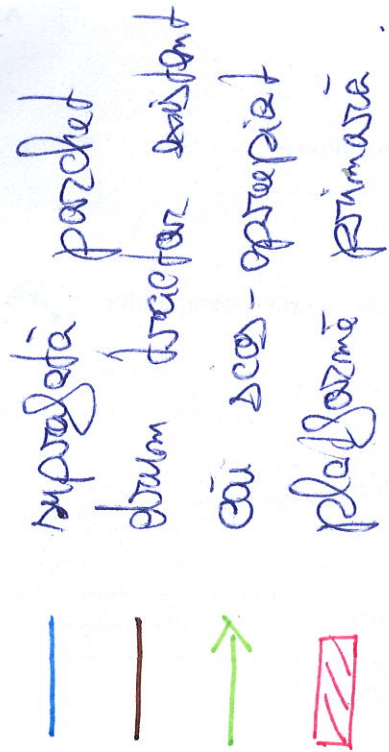 suprafată parchet
drum tractor existent
căi scos apropiat
platformă primară